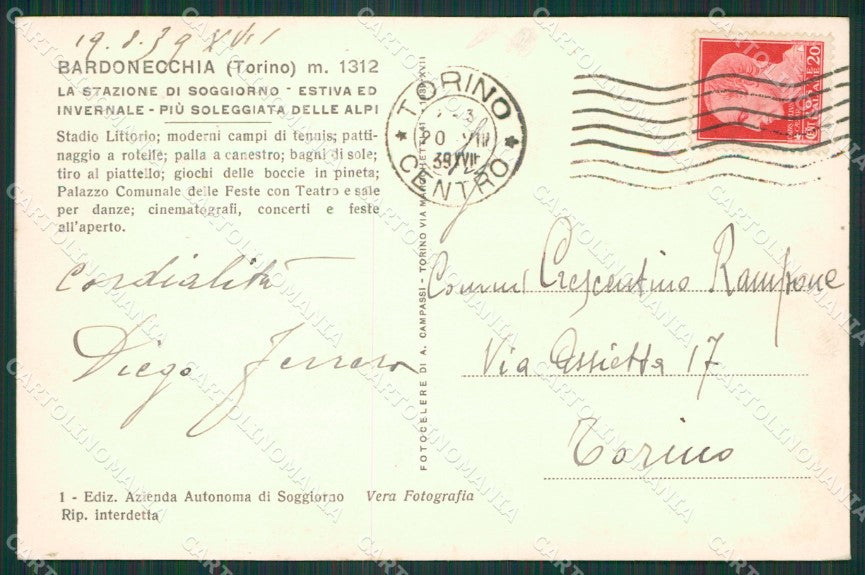 19.8.39 XVII
BARDONECCHIA (Torino) m. 1312
LA STAZIONE DI SOGGIORNO - ESTIVA ED
INVERNALE - PIÙ SOLEGGIATA DELLE ALPI
Stadio Littorio; moderni campi di tennis; patti-
naggio a rotelle; palla a canestro; bagni di sole;
tiro al piattello; giochi delle boccie in pineta;
Palazzo Comunale delle Feste con Teatro e sale
per danze; cinematografi, concerti e feste
all'aperto.
Cordialità
Diego Ferrero
1 - Ediz. Azienda Autonoma di Soggiorno Vera Fotografia
Rip. interdetta
FOTOCELERE DI A. CAMPASSI - TORINO VIA
TORINO
39 XVII
CENTRO
20
Comm Crescentino Rampone
Via Assietta 17
Torino
CARTOLINOMANIA